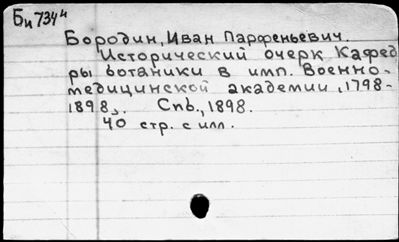 Би 734и
Бородин, Иван Парфеньевич.
Исторический очерк Кафед
ры ботаники в имп. Военно-
медицинской академии, 1798-
1898. Спб., 1898.
40 стр. с илл.